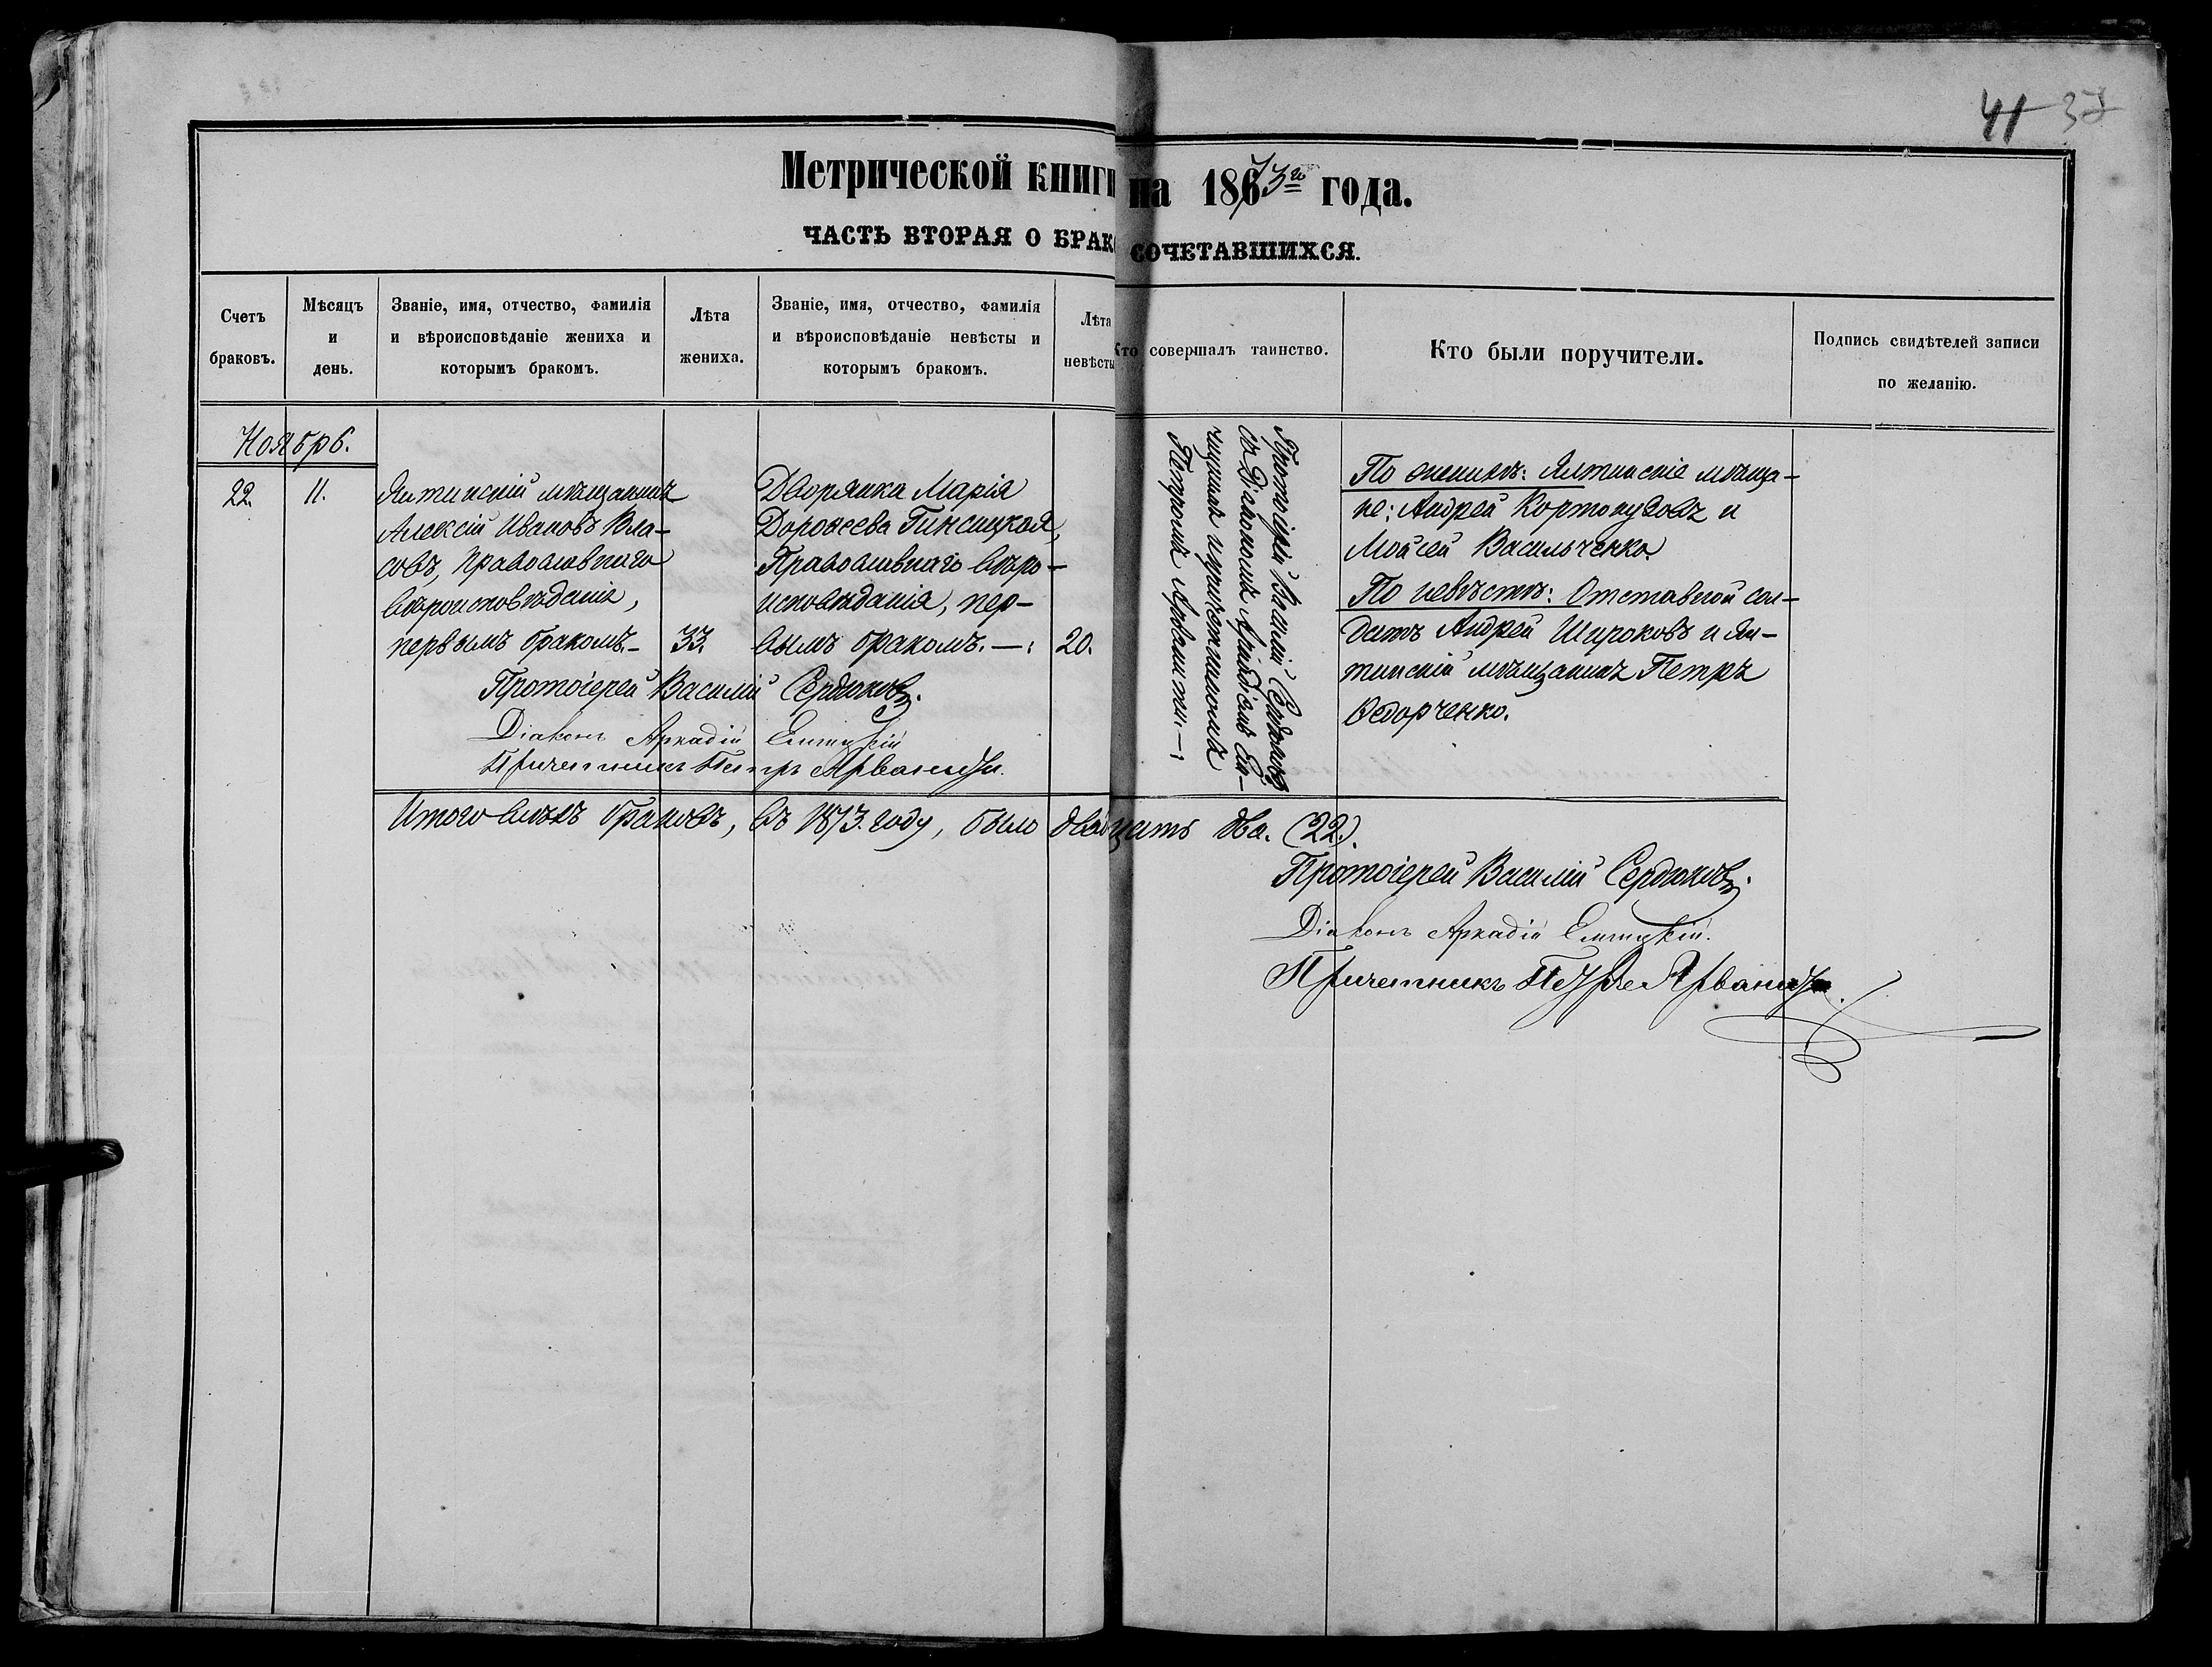 41 37
Метрической книги на 1873го года.
ЧАСТЬ ВТОРАЯ О БРАКОСОЧЕТАВШИХСЯ.
Счетъ браковъ.
Мѣсяцъ и день.
Званіе, имя, отчество, фамилія
и вѣроисповѣданіе жениха и
которымъ бракомъ.
Лѣта жениха.
Званіе, имя, отчество, фамилія
и вѣроисповѣданіе невѣсты и
которымъ бракомъ.
Лѣта невѣсты
Кто совершалъ таинство.
Кто были поручители.
Подпись свидѣтелей записи
по желанію.
Ноябрь.
22. 11.
Ялтинскій мѣщанинъ
Алексій Ивановъ Вла-
совъ, православнаго
вѣроисповѣданія,
первымъ бракомъ.–
33.
Дворянка Марія
Дороѳеева Гинсицкая,
Православнаго вѣро-
исповѣданія, пер-
вымъ бракомъ. —:
20.
Протоіерей Василій Сердюковъ
съ Діакономъ Аркадіемъ Ел-
чицкимъ и причетникомъ
Петромъ Арванити.—:
По женихѣ: Ялтинскіе мѣща-
не: Андрей Кортопудовъ и
Мойсей Васильченко.
По невѣстѣ: Отставной сол-
датъ Андрей Широковъ и Ял-
тинскій мѣщанинъ Петръ
Ѳедорченко.
Протоіерей Василій Сердюковъ.
Діаконъ Аркадій
Причетникъ Петръ Арваниди.
Итого всѣхъ браковъ, въ 1873. году, было двадцать два. (22.).
Протоіерей Василій Сердюковъ.
Діаконъ Аркадій
Причетникъ Петръ Арваниди.